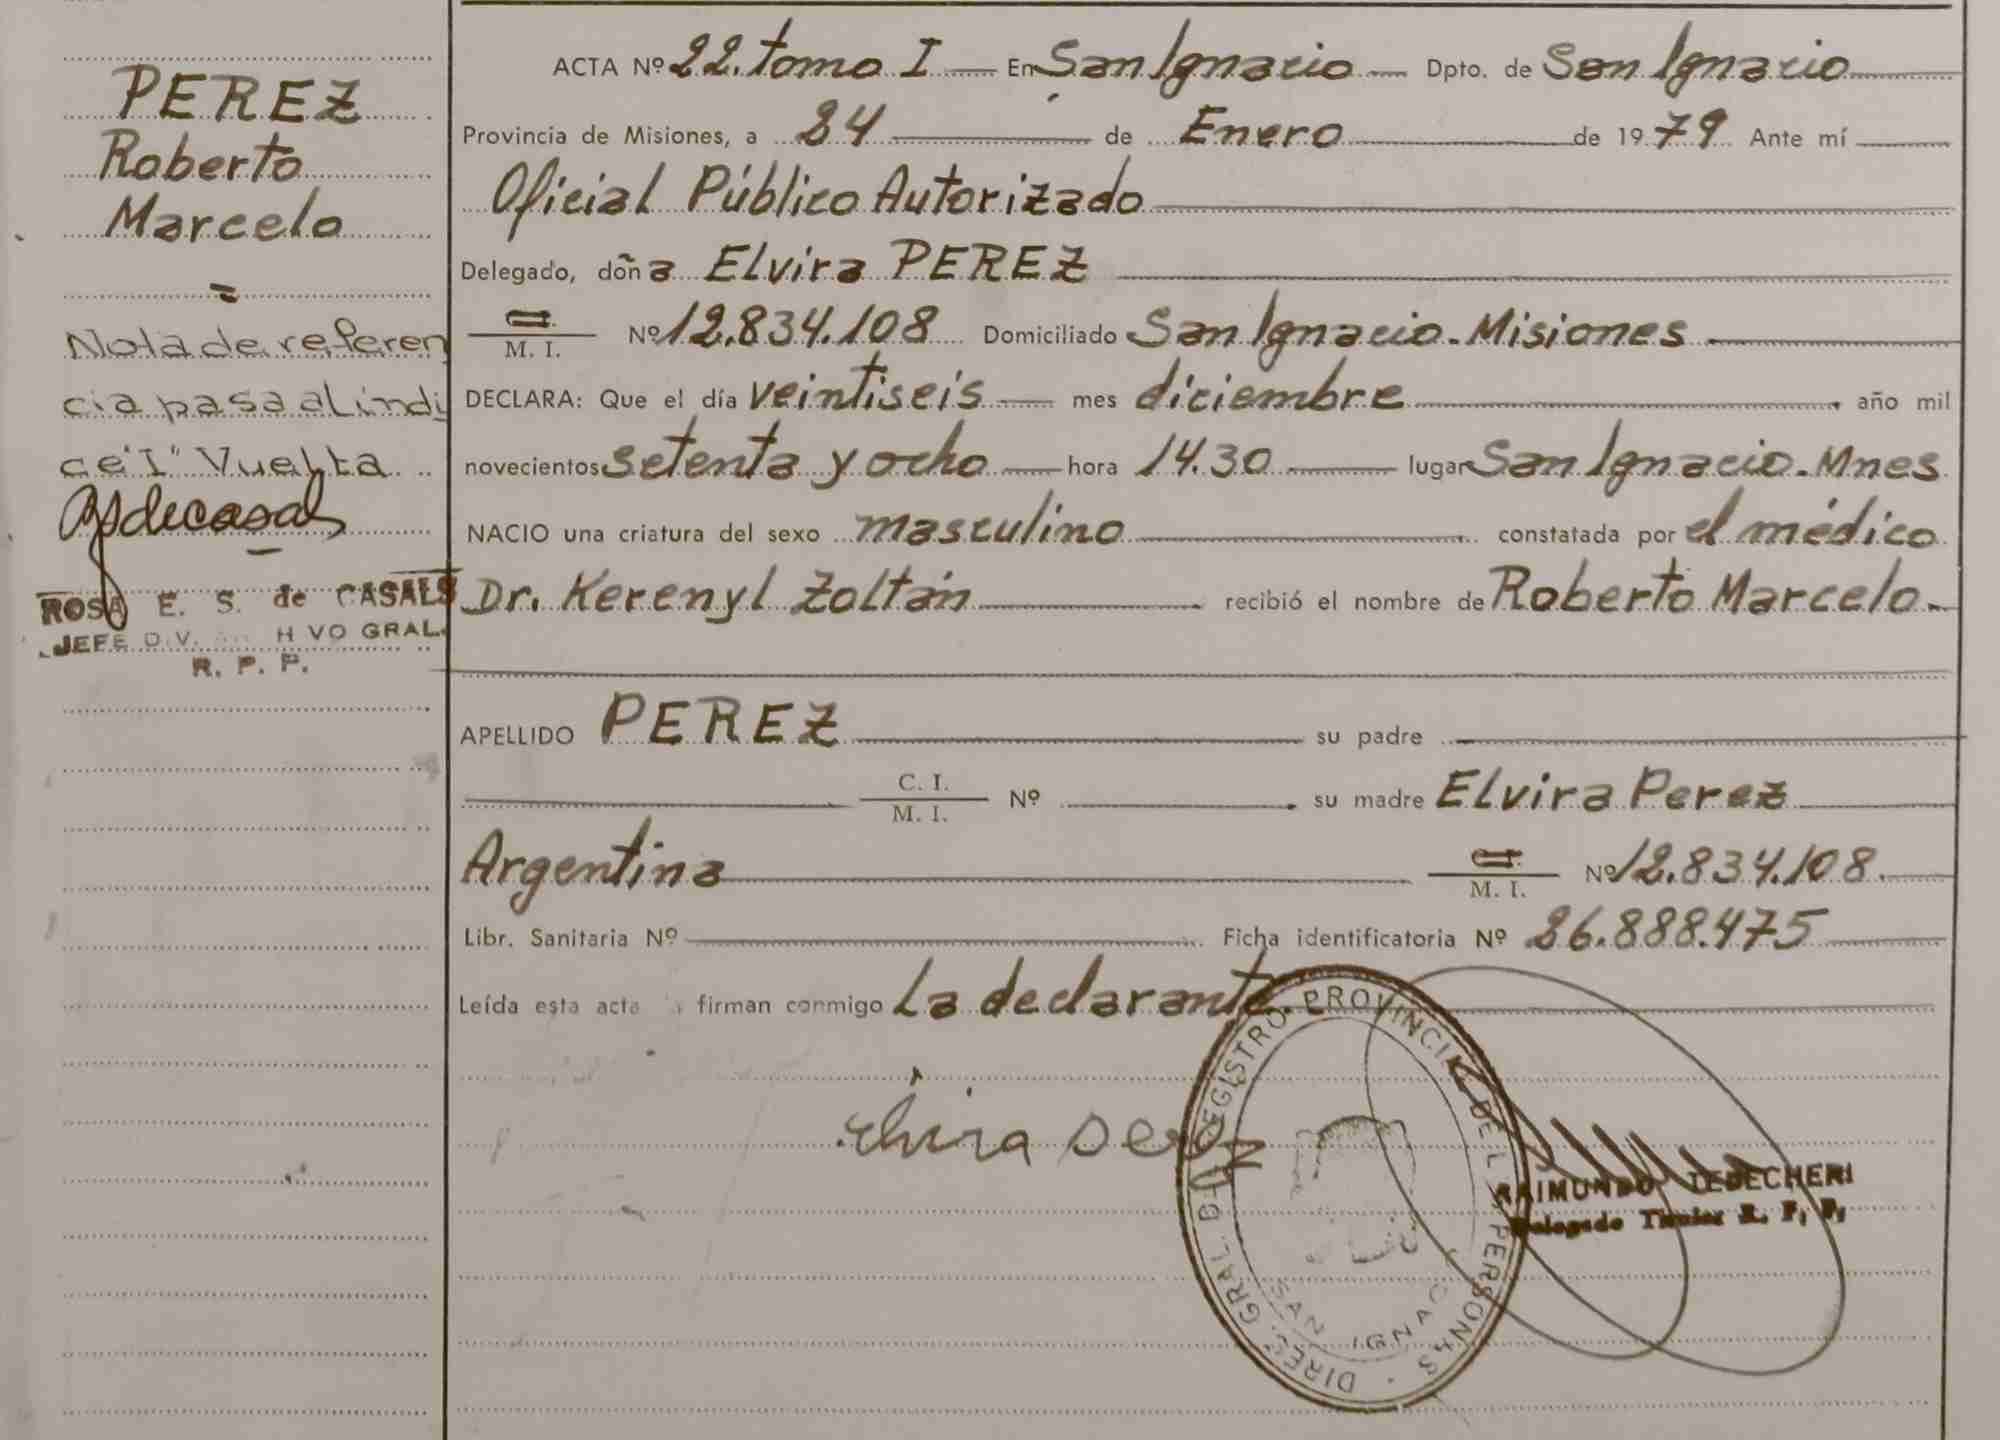 PEREZ
Roberto
Marcelo
=
Nota de referen
cia pasa al indi
ce "I" Vuelta
ROSA E. S. de CASALS
JEFE DIV. HVO GRAL.
R. P. P.
ACTA Nº 22. tomo I En San Ignacio Dpto. de San Ignacio
Provincia de Misiones, a 24 de Enero de 1979 Ante mí
Oficial Público Autorizado
Delegado, doña Elvira PEREZ
C. I.
M. I. Nº 12.834.108 Domiciliado San Ignacio - Misiones
DECLARA: Que el día veintiseis mes diciembre año mil
novecientos setenta y ocho hora 14.30 lugar San Ignacio - Mnes
NACIO una criatura del sexo masculino constatada por el médico
Dr. Kerenyl Zoltán recibió el nombre de Roberto Marcelo
APELLIDO PEREZ su padre
C. I.
M. I. Nº su madre Elvira Perez
Argentina C. I.
M. I. Nº 12.834.108
Libr. Sanitaria Nº Ficha identificatoria Nº 26.888.475
Leída esta acta firman conmigo La declarante.
DIREC. GRAL. DEL REGISTRO PROVINCIAL DE LAS PERSONAS
SAN IGNAC
RAIMUNDO
Delegado Titular R. P. P.